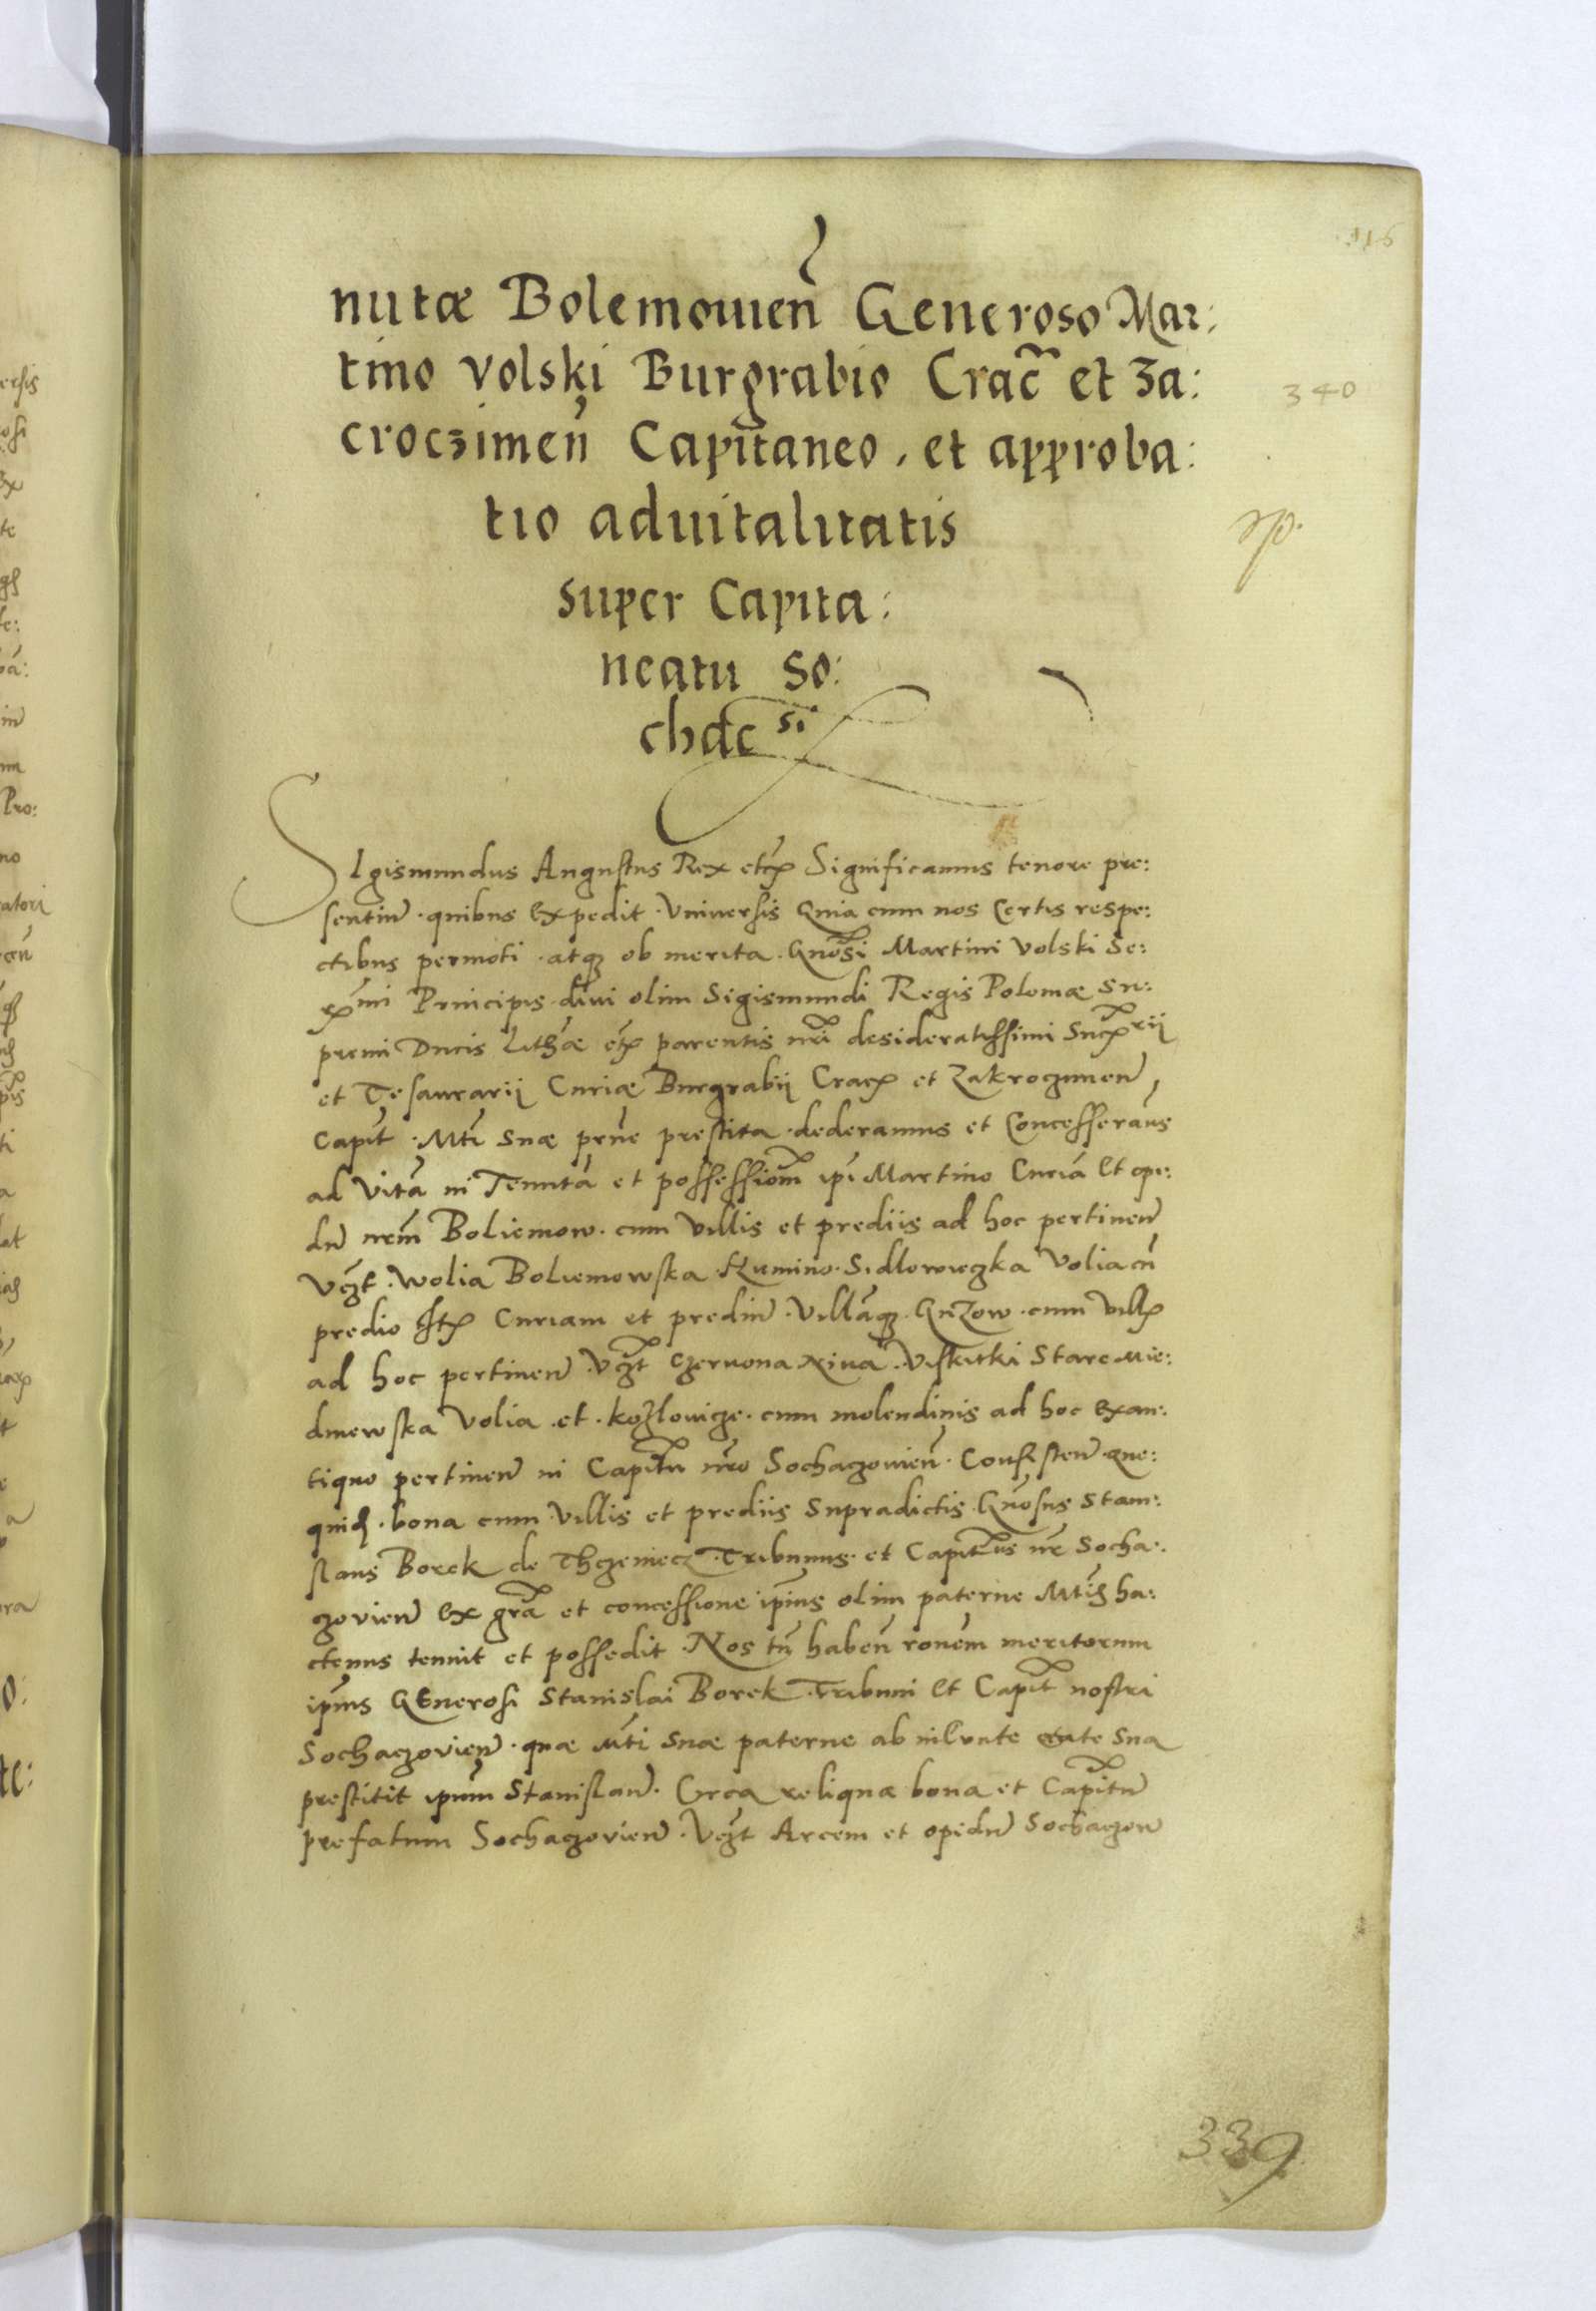 316
nutæ Bolemouien̄ Generoso Mar:
tino Volski Burgrabio Crac̄ et Za:
340
croczimen̄ Capitaneo, et approba:
tio aduitalitatis
sp.
super Capita:
neatu So:
chac si
SIgismundus Augustus Rex etc̄ Significamus tenore pre:
sentiū quibus expedit Vniuersis Quia cum nos Certis respe:
ctibus permoti atq̃ ob merita Gn̄osi Martini Volski Se:
r̄mi Principis diui olim Sigismundi Regis Poloniæ Su:
premi Ducis Lith̄æ etc̄ parentis nr̄i desideratissimi Suc̄rij
et Tesaurarij Curiæ Burgrabij Crac̄ et Zakroczimen̄
Capit̄ Mt̄i Suæ prn̄e prestita dederamus et Concesseram̄us
ad Vitā in Tenutā et possessiom̄ ip̄i Martino Curiā et opi:
dū nr̄m Boliemow cum Villis et prediis ad hoc pertinen̄
Vcz̄t Wolia Boliemowska Kumino Sidlowieczka Volia cū
predio It̄ Curiam et prediū Villāq̃ Guzow cum Vill̄
ad hoc pertinen̄ Vcz̄t Czeruona Niua Viskitki Stare Mie:
dniewska Volia et Kozlouicze cum molendinis ad hoc exan:
tiquo pertinen̄ in Capit̄u nr̄o Sochaczouien̄ Consisten̄ que:
quid̄ bona cum Villis et prediis Supradictis Gn̄osus Stani:
slaus Borek de Thczeniecz Tribunus et Capit̄us nr̄ Socha:
czouien̄ ex gr̄a et concessione ip̄ius olim paterne Mt̄is ha:
ctenus tenuit et possedit Nos tn̄ haben̄ ron̄em meritorum
ip̄ius GEnerosi Stanislai Borek Tribuni et Capit̄ nostri
Sochaczouien̄ quæ Mt̄i Suæ paterne ab iniunte etate Sua
prestitit ipum̄ Stanislaū Circa reliqua bona et Capit̄ū
prefatum Sochaczouien̄ Vcz̄t Arcem et opidū Sochaczow
339